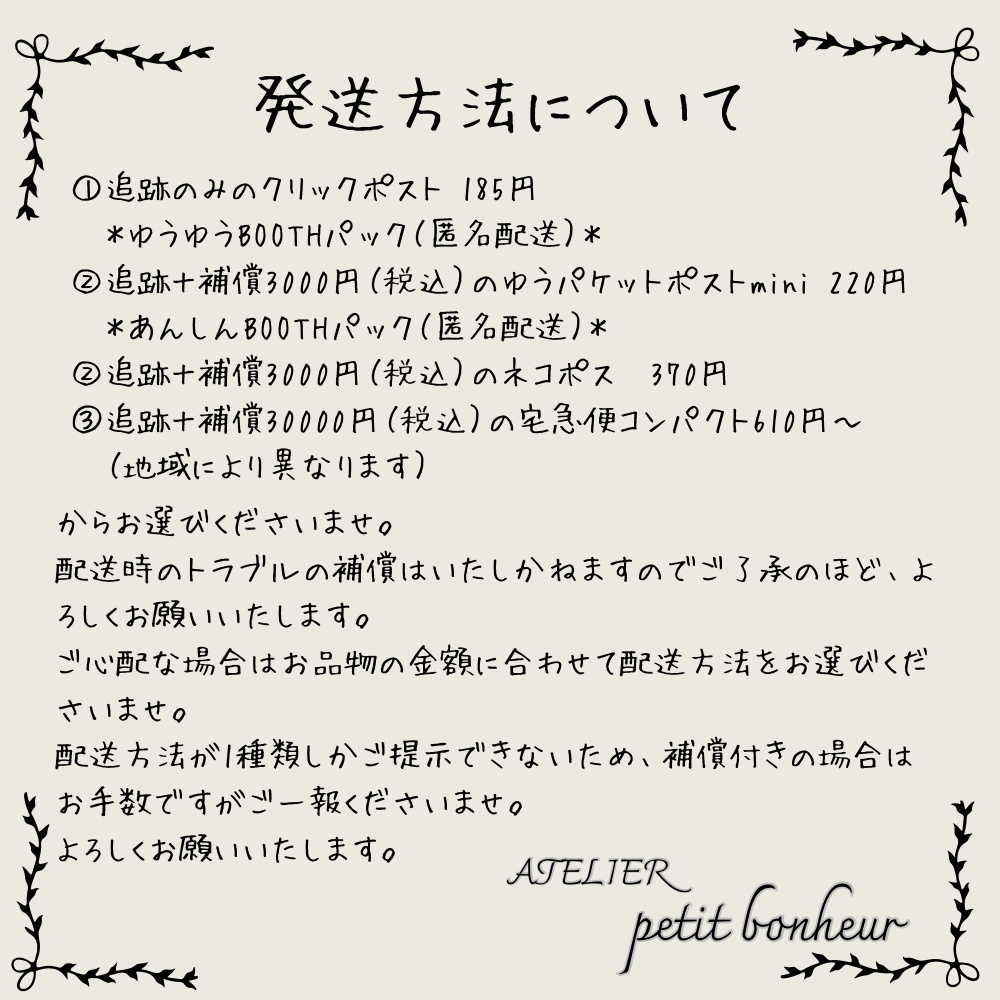 発送方法について
①追跡のみのクリックポスト 185円
*ゆうゆうBOOTHパック(匿名配送)*
②追跡+補償3000円(税込)のゆうパケットポストmini 220円
*あんしんBOOTHパック(匿名配送)*
②追跡+補償3000円(税込)のネコポス 370円
③追跡+補償30000円(税込)の宅急便コンパクト610円~
(地域により異なります)
からお選びくださいませ。
配送時のトラブルの補償はいたしかねますのでご了承のほど、よ
ろしくお願いいたします。
ご心配な場合はお品物の金額に合わせて配送方法をお選びくだ
さいませ。
配送方法が1種類しかご提示できないため、補償付きの場合は
お手数ですがご一報くださいませ。
よろしくお願いいたします。
ATELIER
petit bonheur